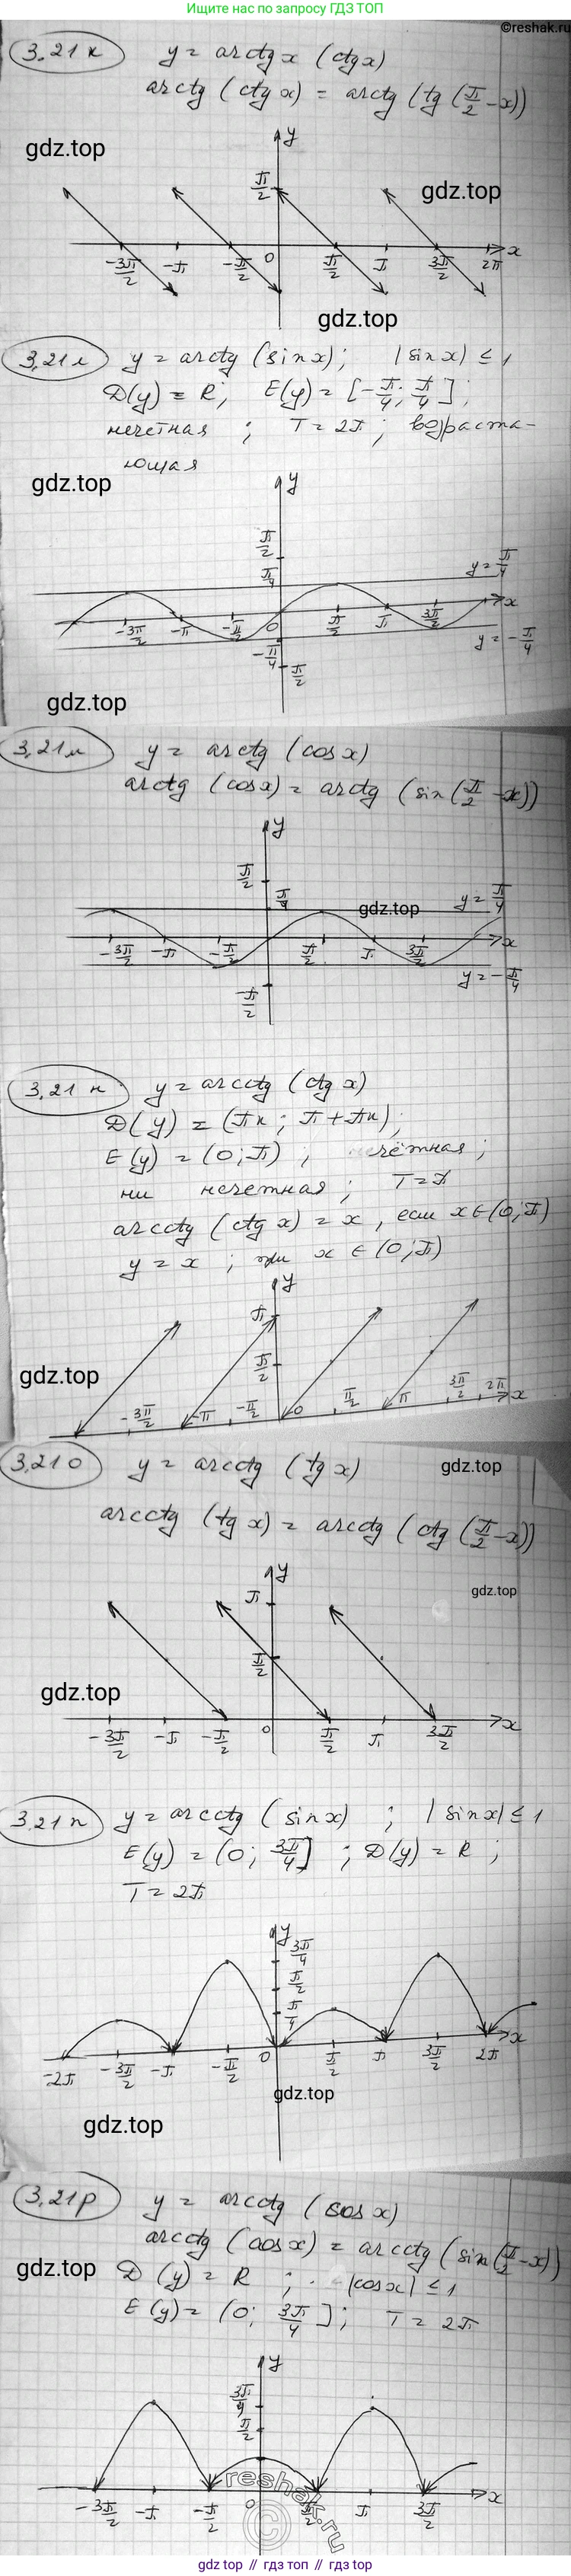 Ищите нас по запросу ГДЗ ТОП
©reshak.ru
3.21 к y = arctg x (ctgx)
arctg (ctg x) = arctg (tg (π/2 - x))
gdz.top
y
π/2
gdz.top
-3π/2 -π -π/2 0 π/2 π 3π/2 2π x
gdz.top
3.21 л y = arctg (sin x); |sin x| ≤ 1
D(y) = R; E(y) = [-π/4; π/4];
нечетная ; T = 2π ; возраста-
ющая
gdz.top
y
π/2
π/4
y = π/4
x
-3π/2 -π -π/2 0 π/2 π 3π/2
y = -π/4
-π/4
π/2
gdz.top
3.21 м y = arctg (cos x)
arctg (cos x) = arctg (sin (π/2 - x))
y
π/2
π/4 gdz.top y = π/4
-3π/2 -π -π/2 π/2 π 3π/2 x
y = -π/4
-π/2
3.21 н y = arcctg (ctg x)
D(y) = (πn; π + πn);
E(y) = (0; π) ; чётная ;
ни нечетная ; T = π
arcctg (ctg x) = x , если x ∈ (0; π)
y = x ; при x ∈ (0; π)
y
π
π/2
gdz.top
-3π/2 -π -π/2 0 π/2 π 3π/2 2π x
3.21 о y = arcctg (tg x)
gdz.top
arcctg (tg x) = arcctg (ctg (π/2 - x))
y
π
gdz.top
π/2
gdz.top
-3π/2 -π -π/2 0 π/2 π 3π/2 x
3.21 п y = arcctg (sin x) ; |sin x| ≤ 1
E(y) = (0; 3π/4] ; D(y) = R ;
T = 2π
y
3π/4
π/2
π/4
-2π -3π/2 -π -π/2 0 π/2 π 3π/2 2π x
gdz.top
gdz.top
3.21 р y = arcctg (cos x)
arcctg (cos x) = arcctg (sin (π/2 - x))
gdz.top
D (y) = R ; |cos x| ≤ 1
E (y) = (0; 3π/4]; T = 2π
y
3π/4
π/2
-3π/2 -π -π/2 0 π/2 π 3π/2 x
reshak.ru
©
gdz top // гдз топ // gdz top